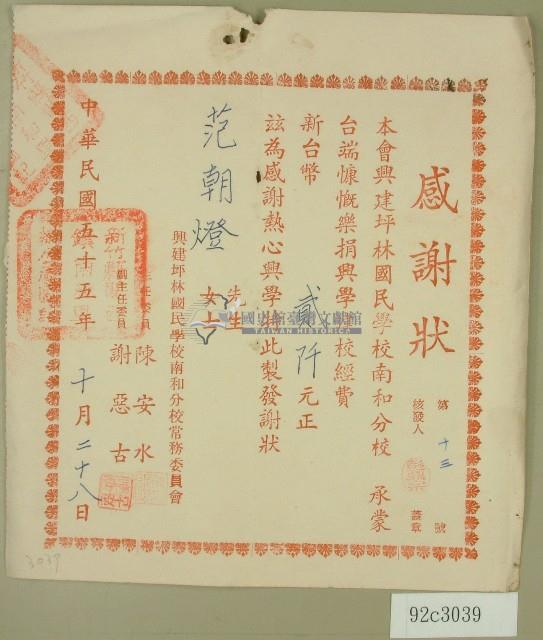 感謝狀
第十三號
核發人 蓋章
本會興建坪林國民學校南和分校 承蒙
台端慷慨樂捐興學建校經費
新台幣 貳仟元正
玆為感謝熱心興學特此製發謝狀
范朝燈 先生
女士
興建坪林國民學校南和分校常務委員會
主任委員 陳安水
副主任委員 謝惡古
中華民國五十五年十月二十八日
國史館臺灣文獻館
TAIWAN HISTORICA
3039
92c3039